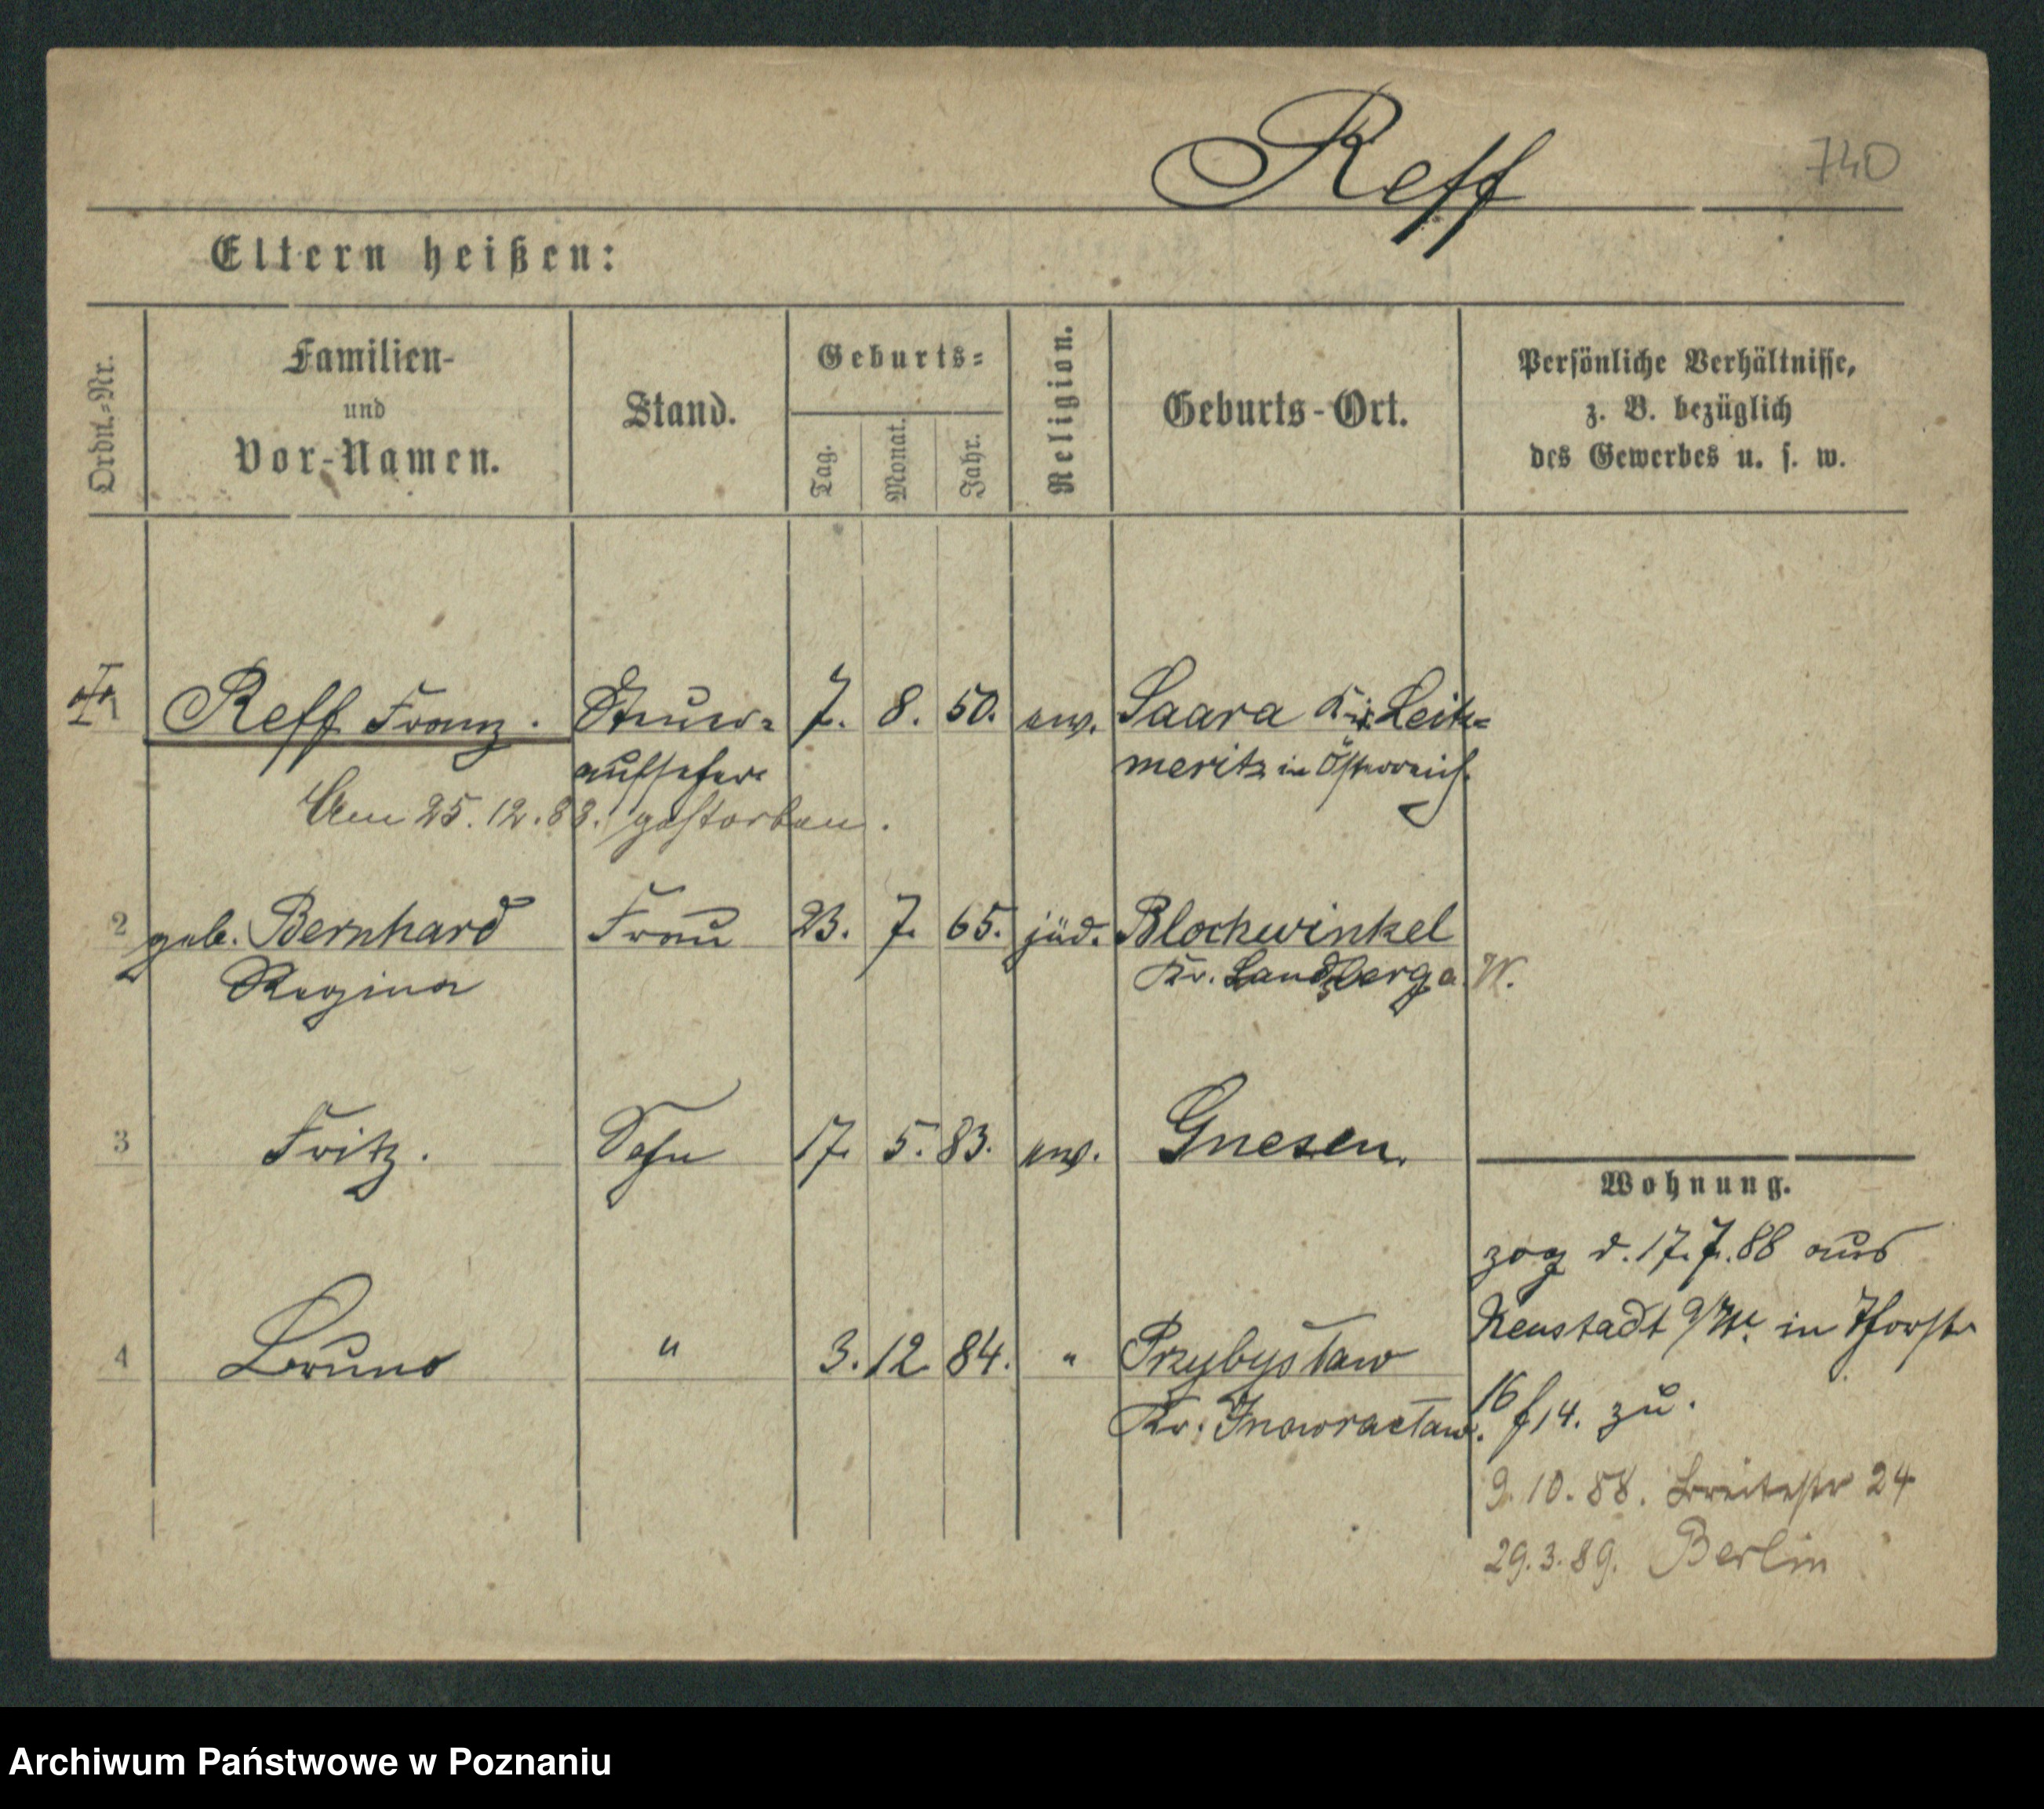 Reff
740
Eltern heißen:
Ordn.-Nr.
Familien-
und
Vor-Namen.
Stand.
Geburts-
Tag.
Monat.
Jahr.
Religion.
Geburts-Ort.
Persönliche Verhältnisse,
z. B. bezüglich
des Gewerbes u. s. w.
Reff Franz. Steuer- 7. 8. 50. ew. Saara Leit-
aufseher meritz in Österreich.
Am 25.12.88. gestorben.
2 geb. Bernhard Frau 23. 7. 65. jüd. Blockwinkel
Regina Kr. Landsberg a. W.
3 Fritz. Sohn 17. 5. 83. ew. Gnesen.
Wohnung.
zog d. 17.7.88 aus
Neustadt a/W. in
4 Bruno " 3. 12 84. " Przybysław
Kr. Inowracław.
16 14. zu.
9.10.88. Breitestr 24
29.3.89. Berlin
Archiwum Państwowe w Poznaniu